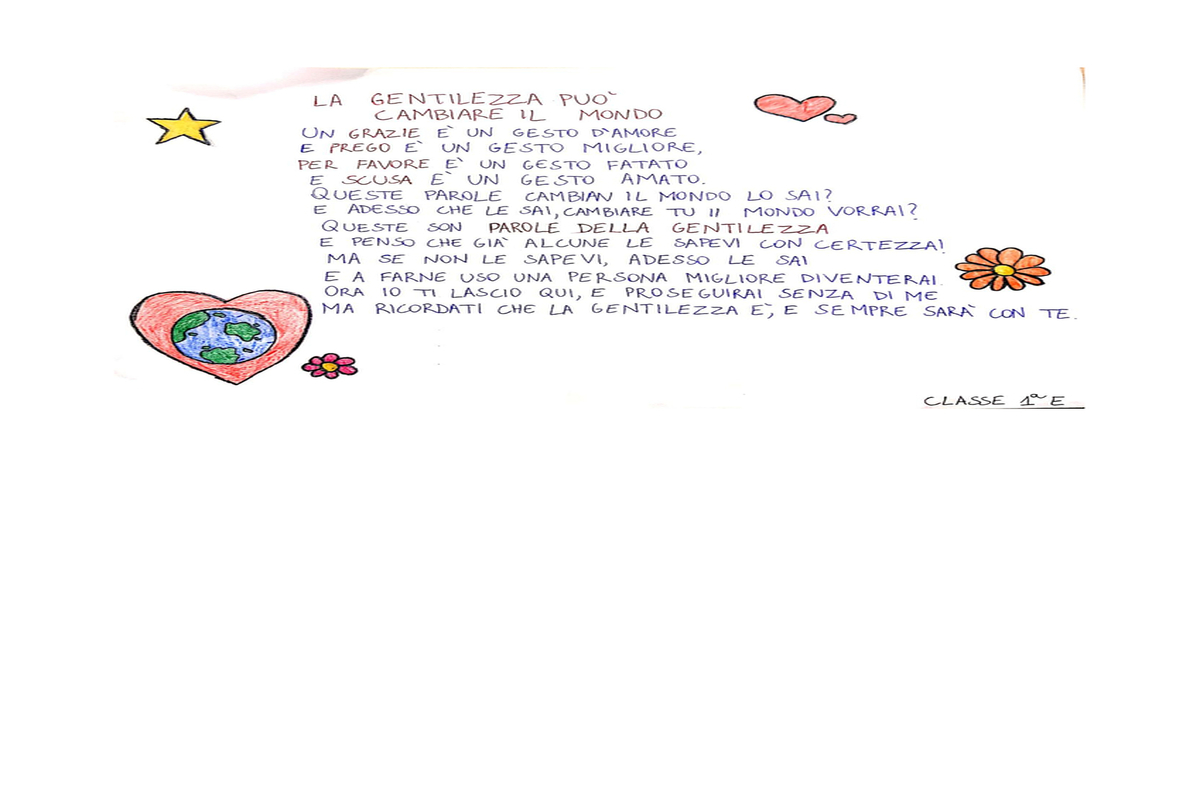 LA GENTILEZZA PUO'
CAMBIARE IL MONDO
UN GRAZIE E' UN GESTO D'AMORE
E PREGO E' UN GESTO MIGLIORE,
PER FAVORE E' UN GESTO FATATO
E SCUSA E' UN GESTO AMATO.
QUESTE PAROLE CAMBIAN IL MONDO LO SAI?
E ADESSO CHE LE SAI, CAMBIARE TU Il MONDO VORRAI?
QUESTE SON PAROLE DELLA GENTILEZZA
E PENSO CHE GIA' ALCUNE LE SAPEVI CON CERTEZZA!
MA SE NON LE SAPEVI, ADESSO LE SAI
E A FARNE USO UNA PERSONA MIGLIORE DIVENTERAI.
ORA IO TI LASCIO QUI, E PROSEGUIRAI SENZA DI ME
MA RICORDATI CHE LA GENTILEZZA E', E SEMPRE SARA' CON TE.
CLASSE 1ª E